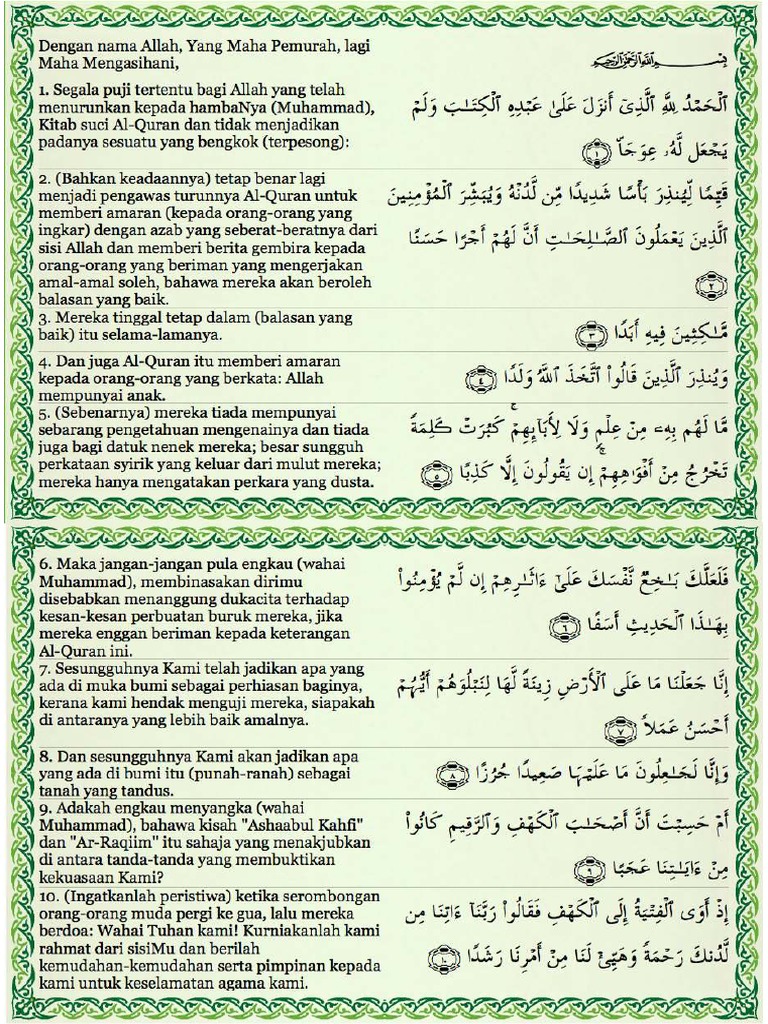 Dengan nama Allah, Yang Maha Pemurah, lagi
Maha Mengasihani,
بِسْمِ ٱللَّهِ ٱلرَّحْمَٰنِ ٱلرَّحِيمِ
1. Segala puji tertentu bagi Allah yang telah
menurunkan kepada hambaNya (Muhammad),
Kitab suci Al-Quran dan tidak menjadikan
padanya sesuatu yang bengkok (terpesong):
ٱلْحَمْدُ لِلَّهِ ٱلَّذِىٓ أَنزَلَ عَلَىٰ عَبْدِهِ ٱلْكِتَـٰبَ وَلَمْ
يَجْعَل لَّهُۥ عِوَجَاۜ ١
2. (Bahkan keadaannya) tetap benar lagi
menjadi pengawas turunnya Al-Quran untuk
memberi amaran (kepada orang-orang yang
ingkar) dengan azab yang seberat-beratnya dari
sisi Allah dan memberi berita gembira kepada
orang-orang yang beriman yang mengerjakan
amal-amal soleh, bahawa mereka akan beroleh
balasan yang baik.
قَيِّمًا لِّيُنذِرَ بَأْسًا شَدِيدًا مِّن لَّدُنْهُ وَيُبَشِّرَ ٱلْمُؤْمِنِينَ
ٱلَّذِينَ يَعْمَلُونَ ٱلصَّـٰلِحَـٰتِ أَنَّ لَهُمْ أَجْرًا حَسَنًا
٢
3. Mereka tinggal tetap dalam (balasan yang
baik) itu selama-lamanya.
مَّـٰكِثِينَ فِيهِ أَبَدًا ٣
4. Dan juga Al-Quran itu memberi amaran
kepada orang-orang yang berkata: Allah
mempunyai anak.
وَيُنذِرَ ٱلَّذِينَ قَالُوا۟ ٱتَّخَذَ ٱللَّهُ وَلَدًا ٤
5. (Sebenarnya) mereka tiada mempunyai
sebarang pengetahuan mengenainya dan tiada
juga bagi datuk nenek mereka; besar sungguh
perkataan syirik yang keluar dari mulut mereka;
mereka hanya mengatakan perkara yang dusta.
مَّا لَهُم بِهِۦ مِنْ عِلْمٍ وَلَا لِأَبَآئِهِمْ ۚ كَبُرَتْ كَلِمَةً
تَخْرُجُ مِنْ أَفْوَٰهِهِمْ ۚ إِن يَقُولُونَ إِلَّا كَذِبًا ٥
6. Maka jangan-jangan pula engkau (wahai
Muhammad), membinasakan dirimu
disebabkan menanggung dukacita terhadap
kesan-kesan perbuatan buruk mereka, jika
mereka enggan beriman kepada keterangan
Al-Quran ini.
فَلَعَلَّكَ بَـٰخِعٌ نَّفْسَكَ عَلَىٰٓ ءَاثَـٰرِهِمْ إِن لَّمْ يُؤْمِنُوا۟
بِهَـٰذَا ٱلْحَدِيثِ أَسَفًا ٦
7. Sesungguhnya Kami telah jadikan apa yang
ada di muka bumi sebagai perhiasan baginya,
kerana kami hendak menguji mereka, siapakah
di antaranya yang lebih baik amalnya.
إِنَّا جَعَلْنَا مَا عَلَى ٱلْأَرْضِ زِينَةً لَّهَا لِنَبْلُوَهُمْ أَيُّهُمْ
أَحْسَنُ عَمَلًا ٧
8. Dan sesungguhnya Kami akan jadikan apa
yang ada di bumi itu (punah-ranah) sebagai
tanah yang tandus.
وَإِنَّا لَجَـٰعِلُونَ مَا عَلَيْهَا صَعِيدًا جُرُزًا ٨
9. Adakah engkau menyangka (wahai
Muhammad), bahawa kisah "Ashaabul Kahfi"
dan "Ar-Raqiim" itu sahaja yang menakjubkan
di antara tanda-tanda yang membuktikan
kekuasaan Kami?
أَمْ حَسِبْتَ أَنَّ أَصْحَـٰبَ ٱلْكَهْفِ وَٱلرَّقِيمِ كَانُوا۟
مِنْ ءَايَـٰتِنَا عَجَبًا ٩
10. (Ingatkanlah peristiwa) ketika serombongan
orang-orang muda pergi ke gua, lalu mereka
berdoa: Wahai Tuhan kami! Kurniakanlah kami
rahmat dari sisiMu dan berilah
kemudahan-kemudahan serta pimpinan kepada
kami untuk keselamatan agama kami.
إِذْ أَوَى ٱلْفِتْيَةُ إِلَى ٱلْكَهْفِ فَقَالُوا۟ رَبَّنَآ ءَاتِنَا مِن
لَّدُنكَ رَحْمَةً وَهَيِّئْ لَنَا مِنْ أَمْرِنَا رَشَدًا ١٠